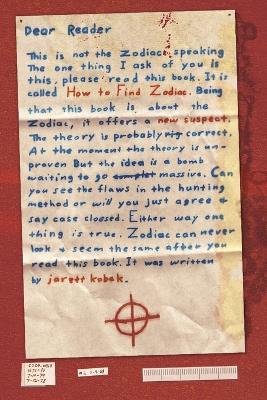 Dear Reader
This is not the Zodiac speaking
The one thing I ask of you is
this, please read this book. It is
called How to Find Zodiac. Being
that this book is about the
Zodiac, it offers a new suspect.
The theory is probably rig correct.
At the moment the theory is un-
proven But the idea is a bomb
waiting to go massive. Can
you see the flaws in the hunting
method or will you just agree &
say case cloesed. Either way one
thing is true. Zodiac can never
look & seem the same after you
read this book. It was written
by jarett kobek.